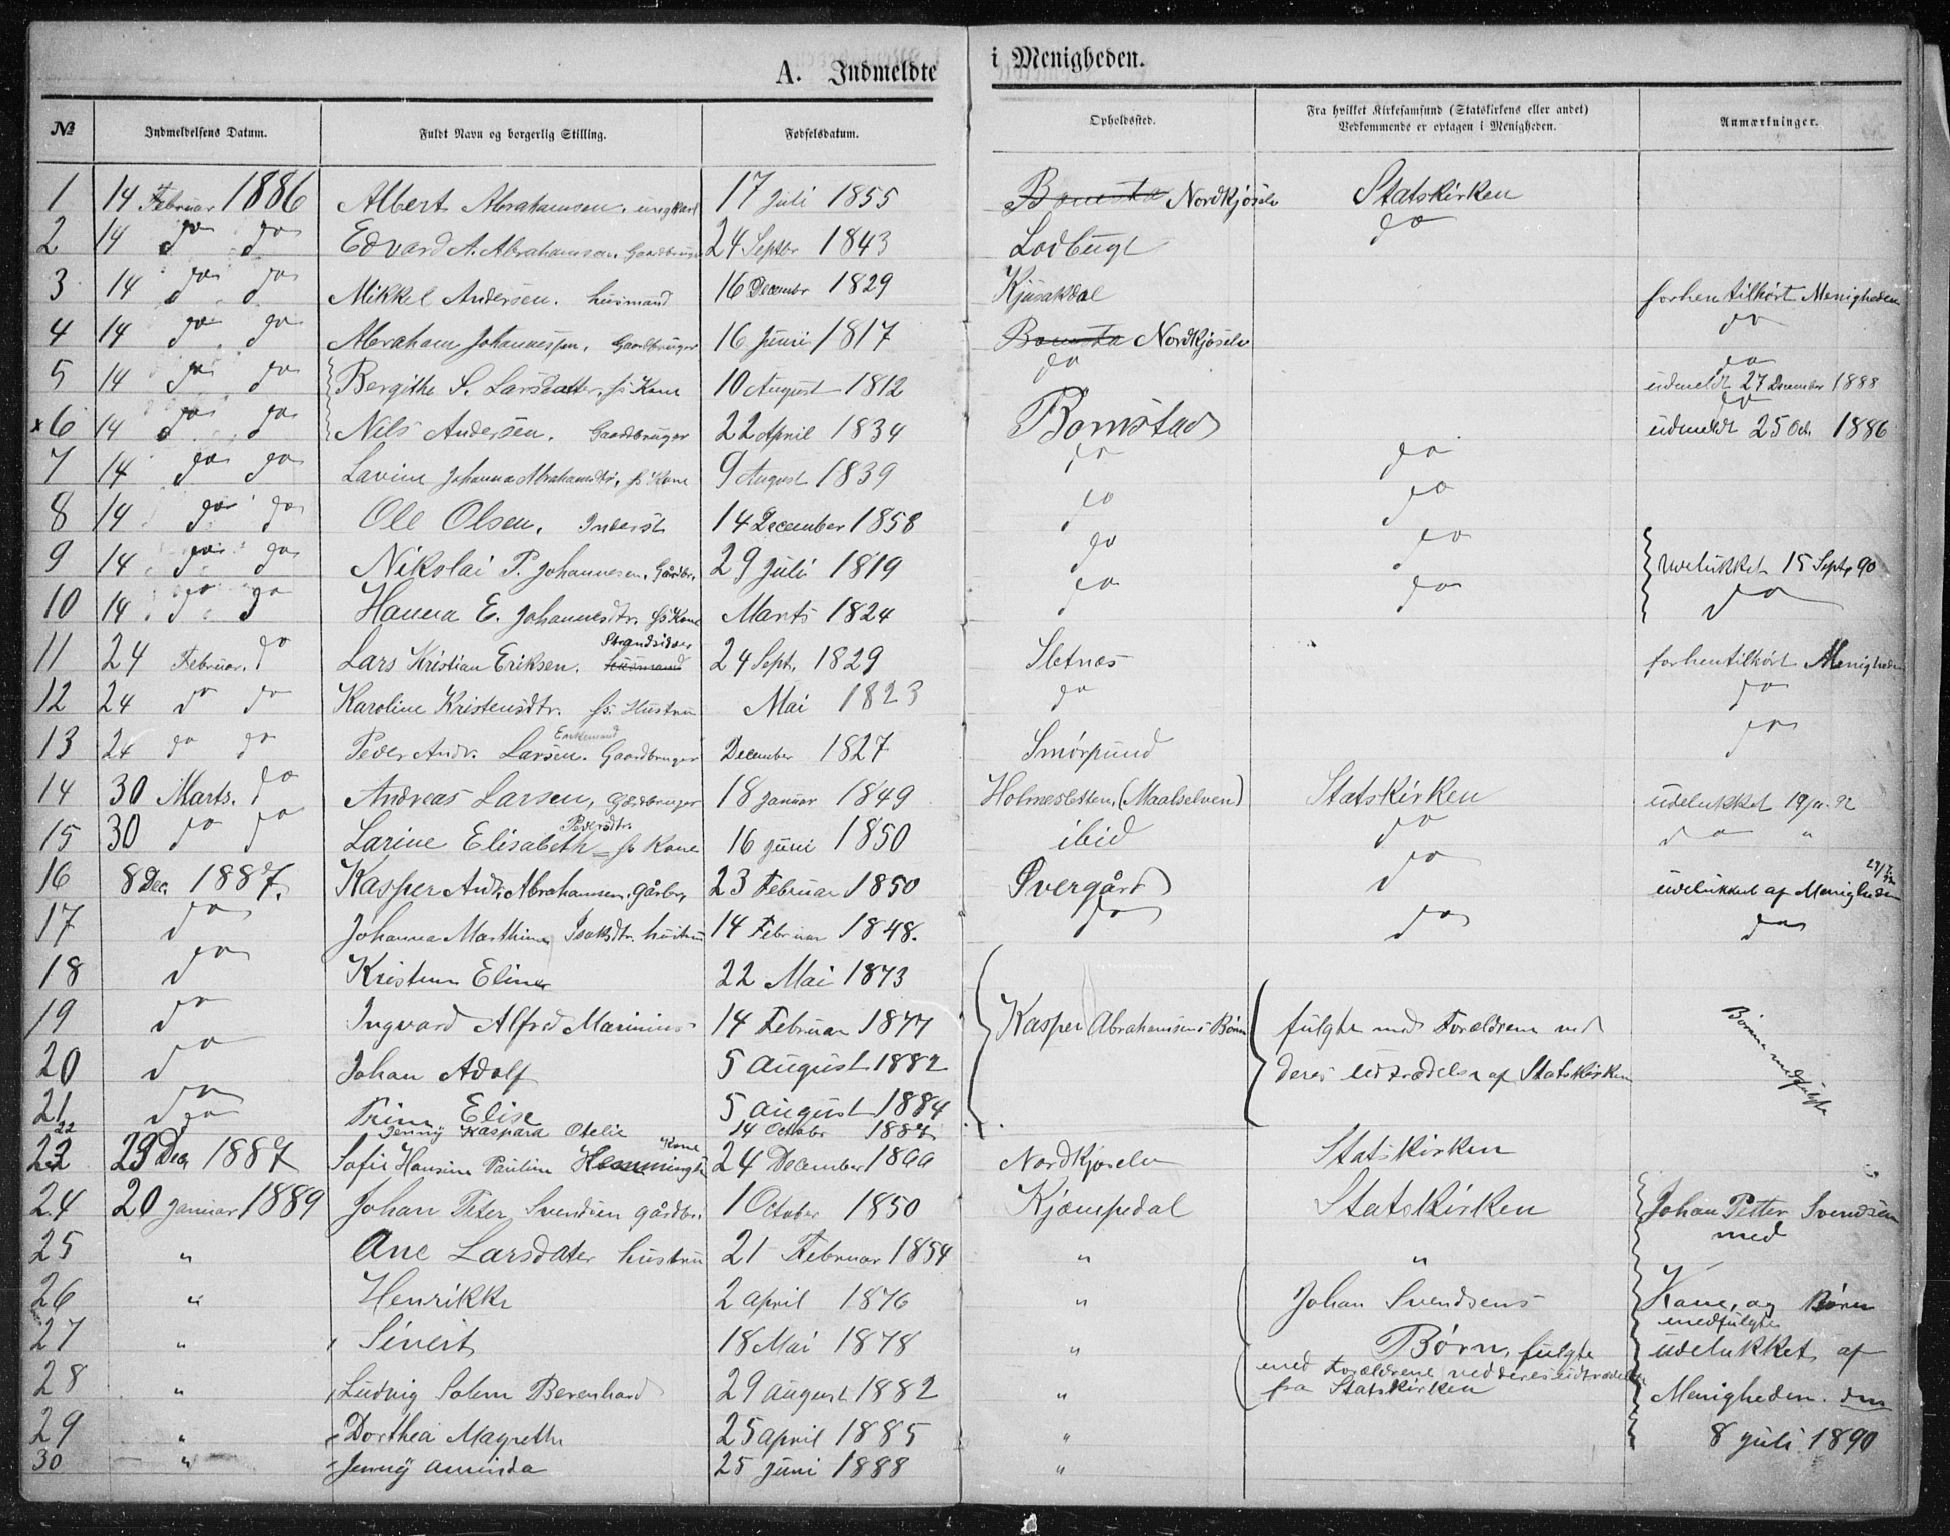 A. Indmeldte i Menigheden.
№ Indmeldelsens Datum. Fuldt Navn og borgerlig Stilling. Fødselsdatum. Opholdssted. Fra hvilket Kirkesamfund (Statskirkens eller andet) Vedkommende er optagen i Menigheden. Anmærkninger.
1 14 Februar 1886 Albert Abrahamsen, ungkarl 17 Juli 1855 Bomsta Nordkjoselv Statskirken
2 14 do do Edvard A. Abrahamsen, Gaardbruger 24 Septbr 1843 Lodbugt do
3 14 do do Mikkel Andersen. husmand 16 Decembr 1829 Kjusakdal forhen tilhört Menigheden
4 14 do do Abraham Johannessen, Gaardbruger 16 Juni 1817 Bomsta Nordkjoselv do
5 14 do do Bergithe S. Larsdatter, fs Kone 10 August 1812 do do udmeldt 27 December 1888
x 6 14 do do Nils Andersen. Gaardbruger 22 April 1834 Bomstad do udmeldt 25 Oct. 1886
7 14 do do Lavine Johanna Abrahamsdtr, fs Kone 9 August 1839 do do
8 14 do do Ole Olsen, Inderst 14 December 1858 do do
9 14 do do Nikolai P. Johannesen, Gårdbr. 29 Juli 1819 do do Udelukket 15 Sept 90
10 14 do do Hanna E. Johannesdtr. fs Kone Marts 1824 do do do
11 24 Februar. do Lars Kristian Eriksen. husmand Strandsidder 24 Sept. 1829 Sletnæs forhen tilhört Menigheden
12 24 do do Karoline Kristensdtr. fs. Hustru Mai 1823 do do
13 24 do do Peder Andr. Larsen. Enkemand Gaardbruger December 1827 Smörpund do
14 30 Marts. do Andreas Larsen, Gaardbruger 18 Januar 1849 Holmesletten, (Maalselven) Statskirken udelukket
15 30 do do Larine Elisabeth Pedersdtr. fs Kone 16 Juni 1850 ibid do do "
16 8 Dec. 1887. Kasper Andr. Abrahamsen, gårbr, 23 Februar 1850 Øvergård do udelukket af Menigheden
17 do Johanna Marthina Isaksdtr. hustru 14 Februar 1848. do do do
18 do Kristine Eline 22 Mai 1873
19 do Ingvard Alfred Marinius 14 Februar 1877 Kasper Abrahamsens Børn fulgte med Forældrene ved Børnene medfulgte
20 do Johan Adolf 5 August 1882 deres Udtrædelse af Statskirken
21 do Trine Elise 5 August 1884
22 do Jenny Kaspara Otelie 14 October 1887
22 23 Dec. 1887 Sofie Hansine Pauline Kone 24 December Nordkjoselv Statskirken
24 20 Januar 1889 Johan Peter Svendsen gårdbr. 1 October 1850 Kjæmpedal Statskirken Johan Petter Svendsen
med
25 " Ane Larsdater hustru 21 Februar 1854 " "
26 " Henrikke 2 April 1876 " Johan Svendsens Kone, og Børn
medfulgte
27 " Sivert 18 Mai 1878 " Børn, fulgte udelukket af
med Forældrene ved deres udtrædelse
28 " Ludvig Solem Berenhard 29 August 1882 " fra Statskirken Menigheden. den
29 " Dorthea Magrethe 25 April 1885 " 8 Juli 1890
30 " Jenny Aminda 25 Juni 1888 "